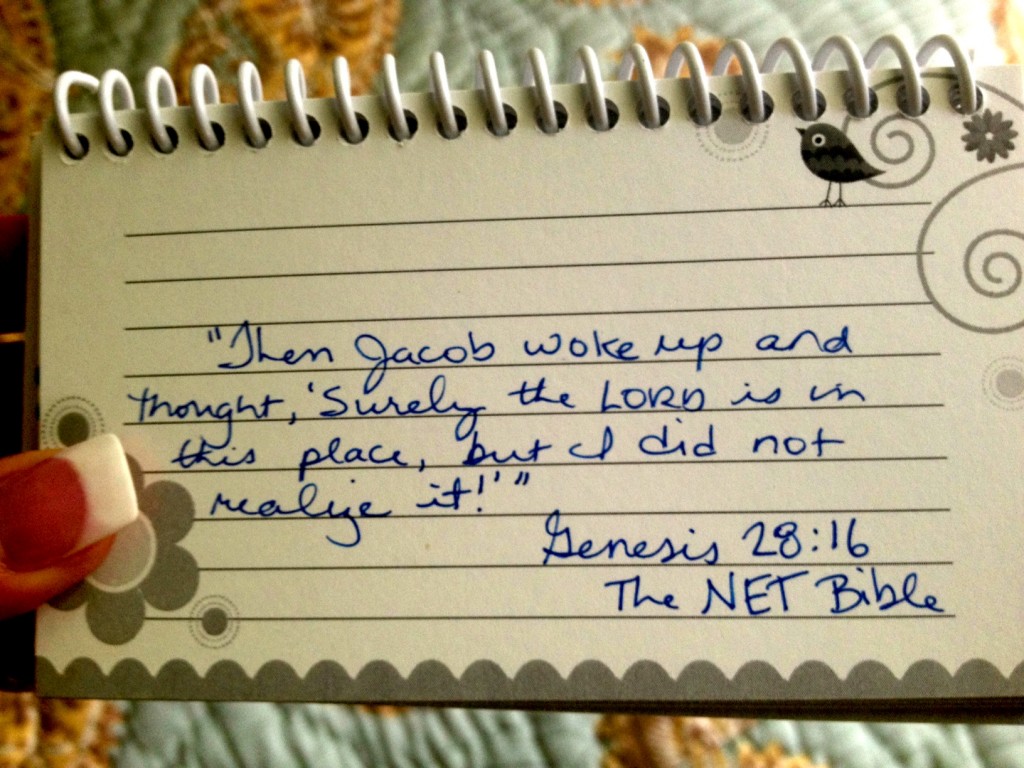 "Then Jacob woke up and
thought, 'Surely the LORD is in
this place, but I did not
realize it!'"
Genesis 28:16
The NET Bible